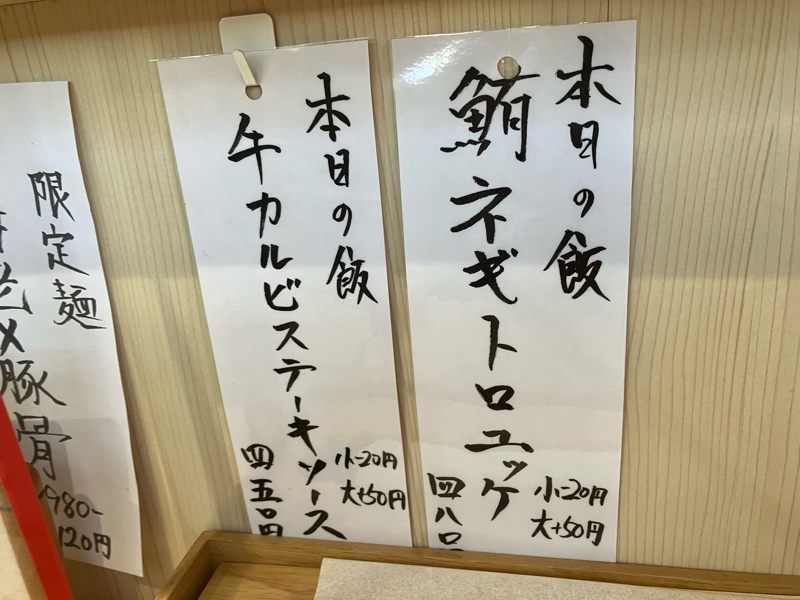 本日の飯
鮪ネギトロユッケ
小-20円
大+50円
四八〇
本日の飯
牛カルビステーキソース
小-20円
大+50円
四五〇円
限定麺
×豚骨
980-
120円